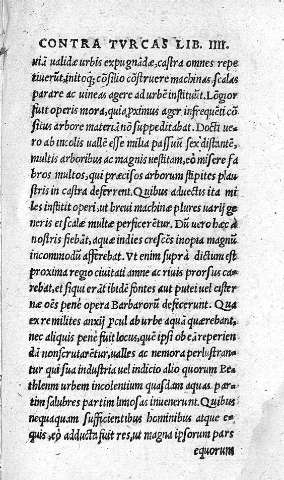 CONTRA TVRCAS LIB. IIII.
uiā ualidæ urbis expugnādæ, castra omnes repe
tiuerūt, initoq; cōsilio cōstruere machinas, scalas
parare ac uineas agere ad urbē instituūt. Lōgior
fuit operis mora, quia proximus ager infrequēti cō
sitius arbore materiā nō suppeditabat. Docti ue
ro ab incolis uallē esse milia passuū sex distantē,
multis arboribus ac magnis uestitam, eò misere fa
bros multos, qui præcisos arborum stipites plau
stris in castra deferrent. Quibus aduectis ita mi
les institit operi, ut breui machinæ plures uarij ge
neris et scalæ multæ perficerētur. Dū uero hæc à
nostris fiebāt, aquæ indies crescēs inopia magnū
incommodū afferebat. Vt enim suprà dictum est
proxima regio ciuitati amne ac riuis prorsus ca
rebat, et siqui erāt ibidē fontes aut putei uel cister
næ oēs penè opera Barbarorū deficerunt. Qua
ex re milites anxij pcul ab urbe aquā quærebant,
nec aliquis penè fuit locus, quē ipsi ob eā reperien
dā non scrutarētur, ualles ac nemora perlustran
tur qui sua industria uel indicio alio quorum Be
thlenm urbem incolentium quasdam aquas par
tim salubres partim limosas inuenerunt. Quibus
nequaquam sufficientibus hominibus atque e
quis, eò adducta fuit res, ut magna ipsorum pars
equorum